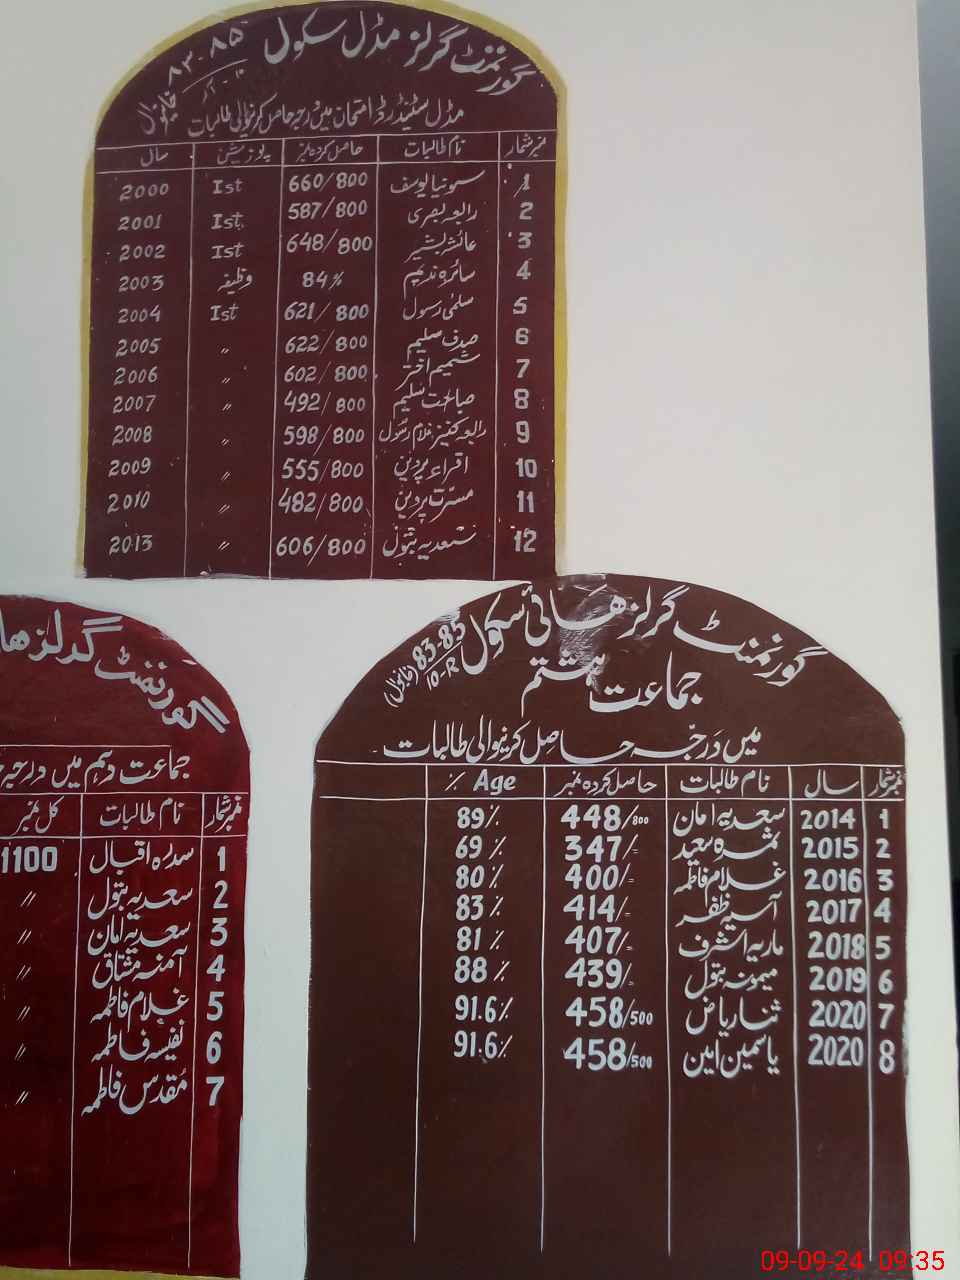 گورنمنٹ گرلز مڈل سکول ۸۵-۸۳
۱۰-آر خانیوال
مڈل سٹینڈرڈ امتحان میں درجہ حاصل کرنیوالی طالبات
نمبر شمار نام طالبات حاصل کردہ نمبر پوزیشن سال
1 سونیا یوسف 660/800 Ist 2000
2 رابعہ بصری 587/800 Ist 2001
3 عائشہ بشیر 648/800 Ist 2002
4 سائرہ ندیم 84% وظیفہ 2003
5 سلمٰی رسول 621/800 Ist 2004
6 صدف سلیم 622/800 〃 2005
7 شمیم اختر 602/800 〃 2006
8 صباحت سلیم 492/800 〃 2007
9 رابعہ کنیز غلام رسول 598/800 〃 2008
10 اقراء پروین 555/800 〃 2009
11 مسرت پروین 482/800 〃 2010
12 سعدیہ بتول 606/800 〃 2013
گورنمنٹ گرلز ھا
جماعت دہم میں درجہ
نمبر شمار نام طالبات کل نمبر
1 سدرہ اقبال 1100
2 سعدیہ بتول 〃
3 سعدیہ امان 〃
4 آمنہ مشتاق 〃
5 غلام فاطمہ 〃
6 نفیسہ فاطمہ 〃
7 مُقدس فاطمہ 〃
گورنمنٹ گرلز ھائی سکول 83-85/10-R (خانیوال)
جماعت ہشتم
میں درجہ حاصل کرنیوالی طالبات
نمبر شمار سال نام طالبات حاصل کردہ نمبر % Age
1 2014 سعدیہ امان 448/800 89%
2 2015 ثمرہ سعید 347/= 69%
3 2016 غلام فاطمہ 400/= 80%
4 2017 آسیہ ظفر 414/= 83%
5 2018 ماریہ اشرف 407/= 81%
6 2019 میمونہ بتول 439/= 88%
7 2020 ثنا ریاض 458/500 91.6%
8 2020 یاسمین امین 458/500 91.6%
09-09-24 09:35